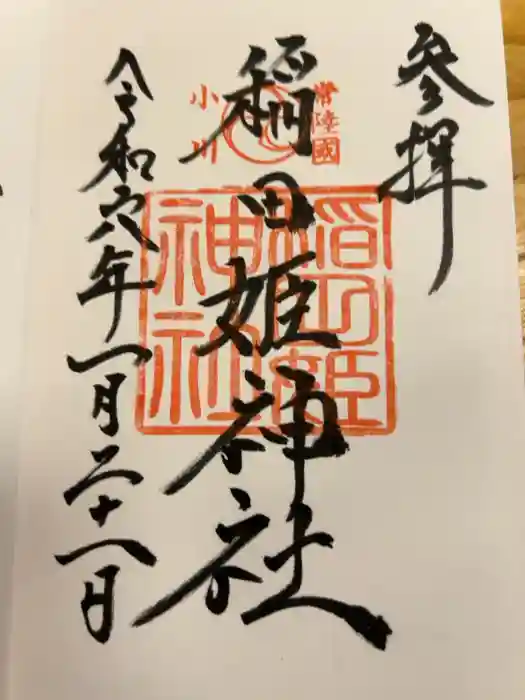 参拝
常陸國
小川
稲田姫神社
稲田姫
神社
令和六年一月二十一日